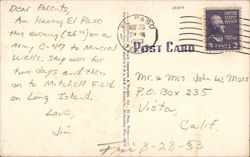 Dear Parents,
Am leaving El Paso
this evening (26th) on a
Army C-47 to Mineral
Wells. Stop over for
two days and then
on to Mitchell Field
on Long Island.
Love,
Jim
EL PASO
1953
POST CARD
3 CENTS 3
Mr. & Mrs. John W. Moss
P.O. Box 235
Vista,
Calif.
8-28-53